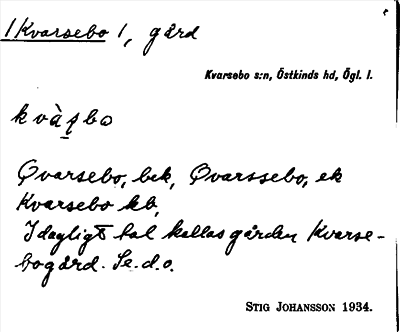 /Kvarsebo 1, gård
Kvarsebo s:n, Östkinds hd, Ögl. l.
kvàʂbo
Qvarsebo, bek, Qvarssebo, ek
Kvarsebo kb,
I dagligt tal kallas gården Kvarse-
bogård. Se. d. o.
STIG JOHANSSON 1934.